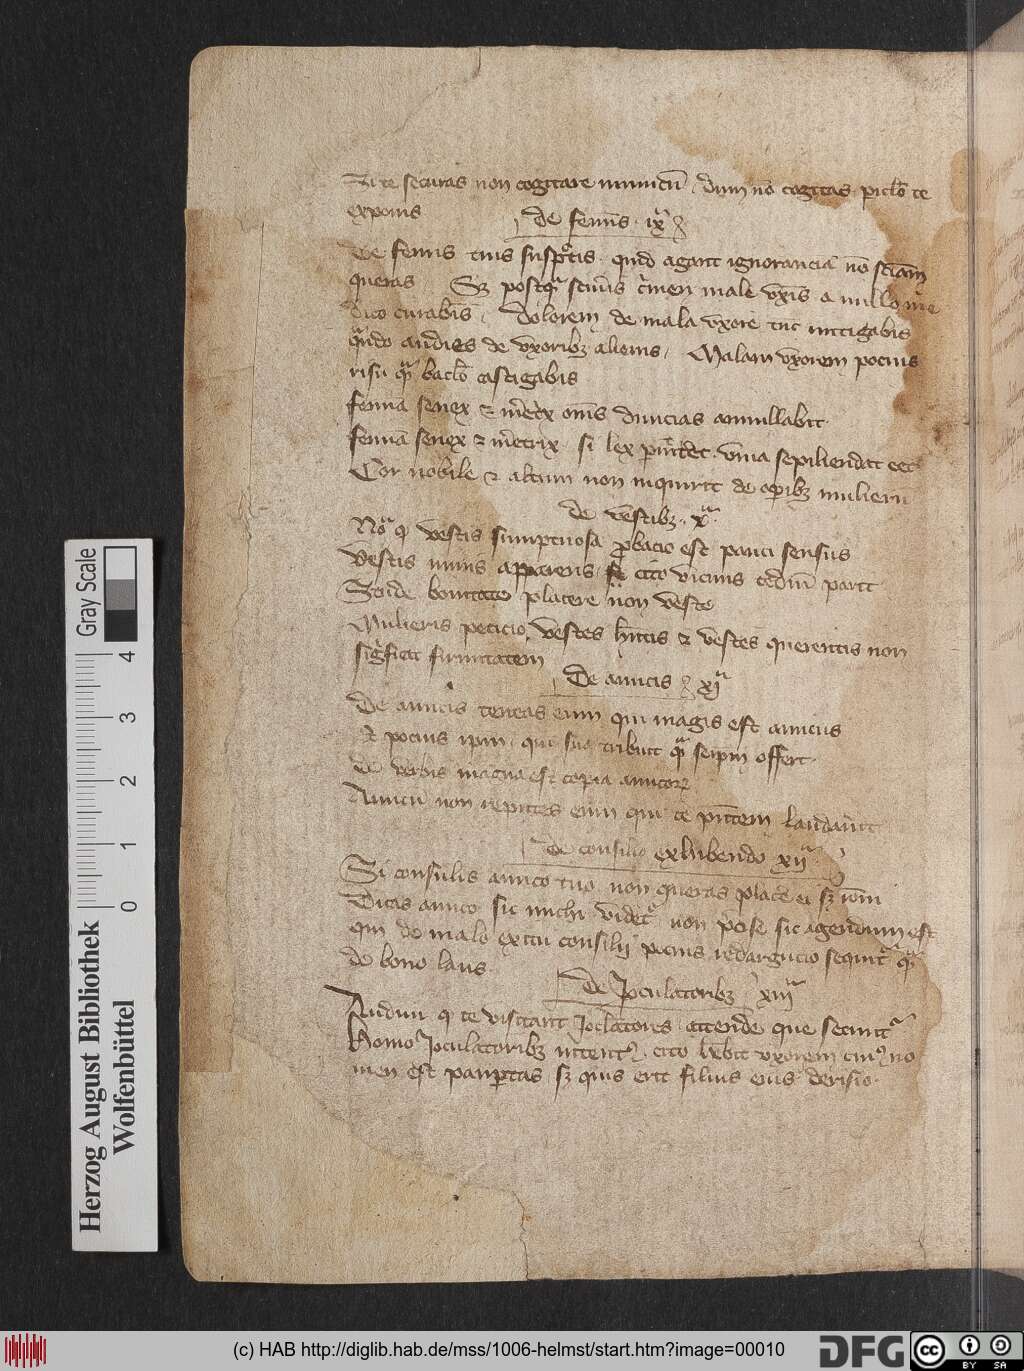 Si te securas non cogitare inimicū dum nō cogitas piclō te
exponis
de femīs · ixᵃ
De femis tuis suspctis · quid agant ignoranciā nō sciam
queras Sz postqᵃ sciuis crimen male vxis a nullo me
dico curabis , dolorem de mala vxore tuc mitigabis
qn̄do audies de vxoribz alienis , Malam vxorem pocius
risu qᵃ bacl̄o castigabis
femā senex & meͣtx om̄s diuicias annullabit
femā senex & m̄etrix si lex permittet · viua sepiliendat eet
Cor nobile & altum non inquirit de opibz mulierū
de vestibz · xᵃ
Noᵃ q vestis sumptuosa probacio est pauci sensus
Vestis nimis apparens cito vicinis tediū parit
Stude bonitate placere non veste
Mulieris peticio vestes hn̄tis & vestes querentis non
sigficat firmitatem
De amicis xiᵃ
De amicis teneas eum qui magis est amicus
Et pocius ipm qui sua tribuit qᵃ seipm offert
de verbis magna est copia amicoꝝ
Amicū non reputes eum qui te pn̄tem laudauit
de consilio exhibendo xiiᵃ
Si consulis amico tuo non queras placē ei sz roīn
Dicas amico sic michi videtᵘ non p̄cise sic agendum est
qui de malo exitu consilij pocius redargucio sequitᵘ qᵃ
de bono laus
de Joculatoribz xiiiᵃ
Audiui q te visitant Joclatores · attende que secuntᵘ
Homo Joculatoribz intent⁹ cito hēbit vxorem cui⁹ no
men est paupertas sz quis erit filius eius derisio ·
Gray Scale
4
3
2
1
0
Herzog August Bibliothek
Wolfenbüttel
(c) HAB http://diglib.hab.de/mss/1006-helmst/start.htm?image=00010
DFG
cc
BY SA